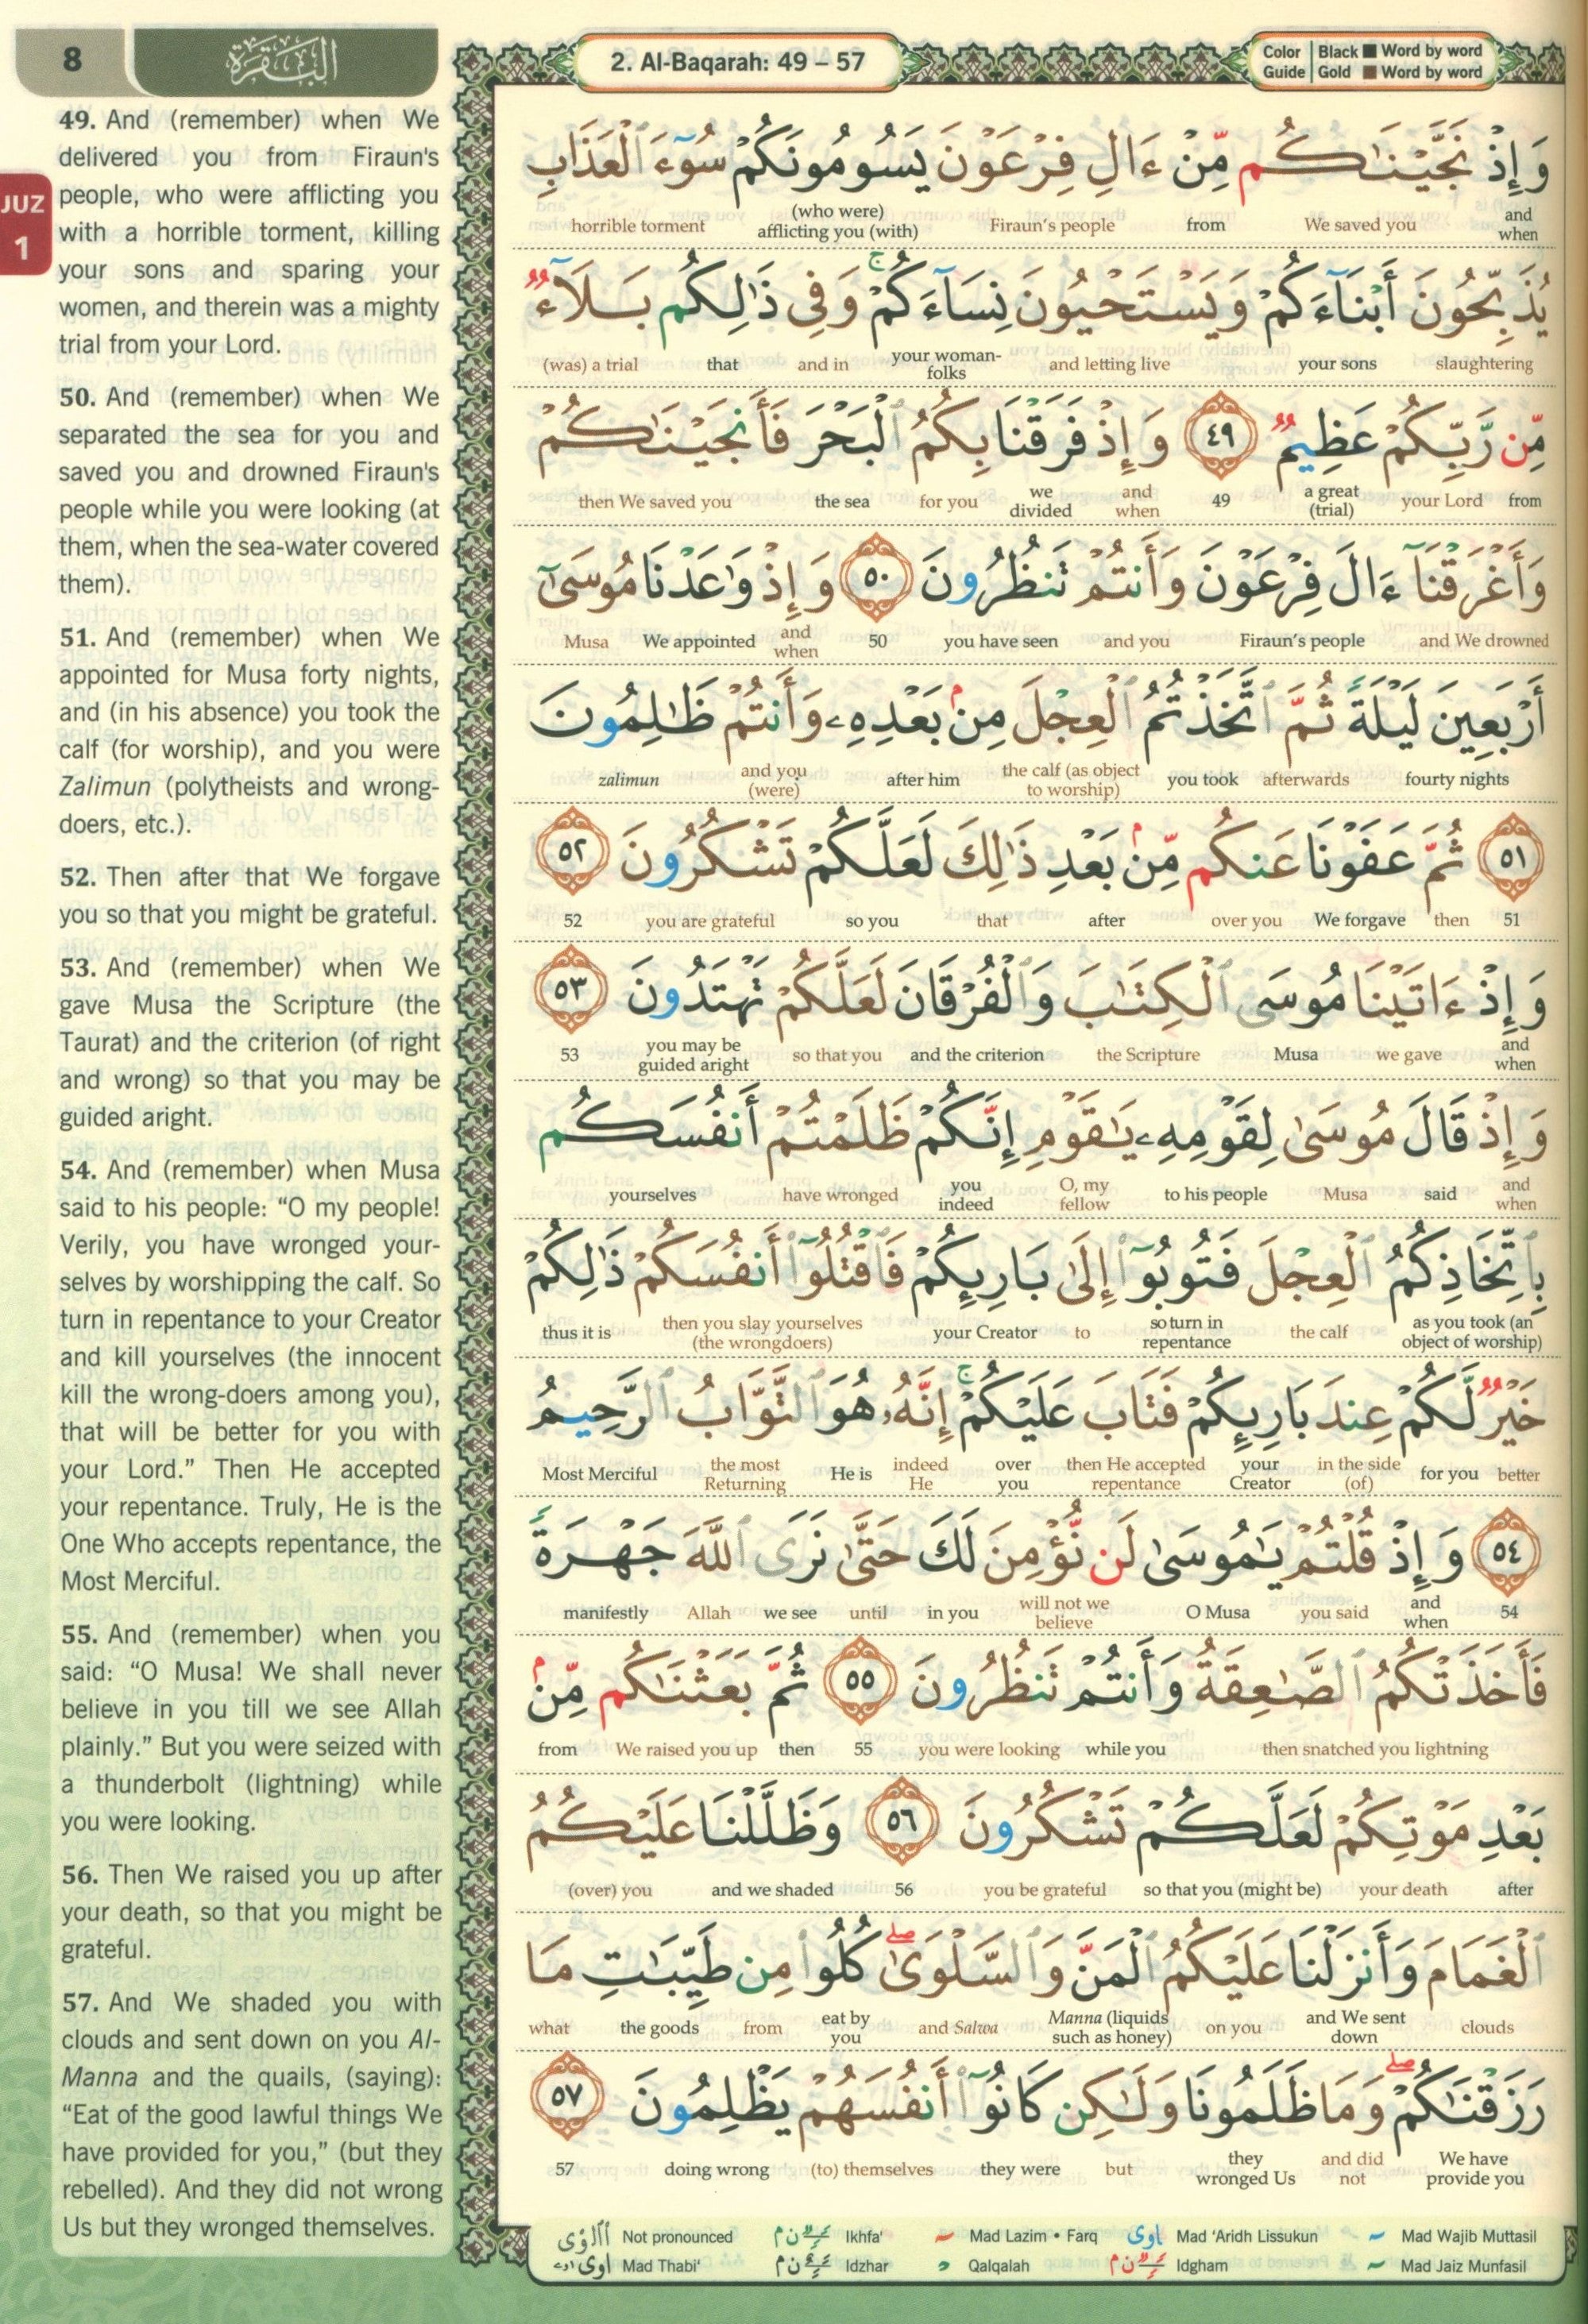 8
البقرة
2. Al-Baqarah: 49 – 57
Color Guide
Black ■ Word by word
Gold ■ Word by word
JUZ
1
49. And (remember) when We
delivered you from Firaun's
people, who were afflicting you
with a horrible torment, killing
your sons and sparing your
women, and therein was a mighty
trial from your Lord.
50. And (remember) when We
separated the sea for you and
saved you and drowned Firaun's
people while you were looking (at
them, when the sea-water covered
them).
51. And (remember) when We
appointed for Musa forty nights,
and (in his absence) you took the
calf (for worship), and you were
Zalimun (polytheists and wrong-
doers, etc.).
52. Then after that We forgave
you so that you might be grateful.
53. And (remember) when We
gave Musa the Scripture (the
Taurat) and the criterion (of right
and wrong) so that you may be
guided aright.
54. And (remember) when Musa
said to his people: “O my people!
Verily, you have wronged your-
selves by worshipping the calf. So
turn in repentance to your Creator
and kill yourselves (the innocent
kill the wrong-doers among you),
that will be better for you with
your Lord.” Then He accepted
your repentance. Truly, He is the
One Who accepts repentance, the
Most Merciful.
55. And (remember) when you
said: “O Musa! We shall never
believe in you till we see Allah
plainly.” But you were seized with
a thunderbolt (lightning) while
you were looking.
56. Then We raised you up after
your death, so that you might be
grateful.
57. And We shaded you with
clouds and sent down on you Al-
Manna and the quails, (saying):
“Eat of the good lawful things We
have provided for you,” (but they
rebelled). And they did not wrong
Us but they wronged themselves.
وَإِذْ نَجَّيْنَٰكُم مِّنْ ءَالِ فِرْعَوْنَ يَسُومُونَكُمْ سُوٓءَ ٱلْعَذَابِ
and when We saved you from Firaun's people (who were) afflicting you (with) horrible torment
يُذَبِّحُونَ أَبْنَآءَكُمْ وَيَسْتَحْيُونَ نِسَآءَكُمْ ۚ وَفِى ذَٰلِكُم بَلَآءٌ
slaughtering your sons and letting live your woman-folks and in that (was) a trial
مِّن رَّبِّكُمْ عَظِيمٌ ٤٩ وَإِذْ فَرَقْنَا بِكُمُ ٱلْبَحْرَ فَأَنجَيْنَٰكُمْ
from your Lord a great (trial) 49 and when we divided for you the sea then We saved you
وَأَغْرَقْنَآ ءَالَ فِرْعَوْنَ وَأَنتُمْ تَنظُرُونَ ٥٠ وَإِذْ وَٰعَدْنَا مُوسَىٰٓ
and We drowned Firaun's people and you you have seen 50 and when We appointed Musa
أَرْبَعِينَ لَيْلَةً ثُمَّ ٱتَّخَذْتُمُ ٱلْعِجْلَ مِنۢ بَعْدِهِۦ وَأَنتُمْ ظَٰلِمُونَ
fourty nights afterwards you took the calf (as object to worship) after him and you (were) zalimun
٥١ ثُمَّ عَفَوْنَا عَنكُم مِّنۢ بَعْدِ ذَٰلِكَ لَعَلَّكُمْ تَشْكُرُونَ ٥٢
51 then We forgave over you after that so you you are grateful 52
وَإِذْ ءَاتَيْنَا مُوسَى ٱلْكِتَٰبَ وَٱلْفُرْقَانَ لَعَلَّكُمْ تَهْتَدُونَ ٥٣
and when we gave Musa the Scripture and the criterion so that you you may be guided aright 53
وَإِذْ قَالَ مُوسَىٰ لِقَوْمِهِۦ يَٰقَوْمِ إِنَّكُمْ ظَلَمْتُمْ أَنفُسَكُم
and when said Musa to his people O, my fellow you indeed have wronged yourselves
بِٱتِّخَاذِكُمُ ٱلْعِجْلَ فَتُوبُوٓا۟ إِلَىٰ بَارِئِكُمْ فَٱقْتُلُوٓا۟ أَنفُسَكُمْ ذَٰلِكُمْ
as you took (an object of worship) the calf so turn in repentance to your Creator then you slay yourselves (the wrongdoers) thus it is
خَيْرٌ لَّكُمْ عِندَ بَارِئِكُمْ فَتَابَ عَلَيْكُمْ ۚ إِنَّهُۥ هُوَ ٱلتَّوَّابُ ٱلرَّحِيمُ
better for you in the side (of) your Creator then He accepted repentance over you indeed He He is the most Returning Most Merciful
٥٤ وَإِذْ قُلْتُمْ يَٰمُوسَىٰ لَن نُّؤْمِنَ لَكَ حَتَّىٰ نَرَى ٱللَّهَ جَهْرَةً
54 and when you said O Musa will not we believe in you until we see Allah manifestly
فَأَخَذَتْكُمُ ٱلصَّٰعِقَةُ وَأَنتُمْ تَنظُرُونَ ٥٥ ثُمَّ بَعَثْنَٰكُم مِّنۢ
then snatched you lightning while you you were looking 55 then We raised you up from
بَعْدِ مَوْتِكُمْ لَعَلَّكُمْ تَشْكُرُونَ ٥٦ وَظَلَّلْنَا عَلَيْكُمُ
after your death so that you (might be) you be grateful 56 and we shaded (over) you
ٱلْغَمَامَ وَأَنزَلْنَا عَلَيْكُمُ ٱلْمَنَّ وَٱلسَّلْوَىٰ ۖ كُلُوا۟ مِن طَيِّبَٰتِ مَا
clouds and We sent down on you Manna (liquids such as honey) and Salwa eat by you from the goods what
رَزَقْنَٰكُمْ ۖ وَمَا ظَلَمُونَا وَلَٰكِن كَانُوٓا۟ أَنفُسَهُمْ يَظْلِمُونَ ٥٧
We have provide you and did not they wronged Us but they were (to) themselves doing wrong 57
Not pronounced
Ikhfa'
Mad Lazim • Farq
Mad 'Aridh Lissukun
Mad Wajib Muttasil
Mad Thabi'
Idzhar
Qalqalah
Idgham
Mad Jaiz Munfasil